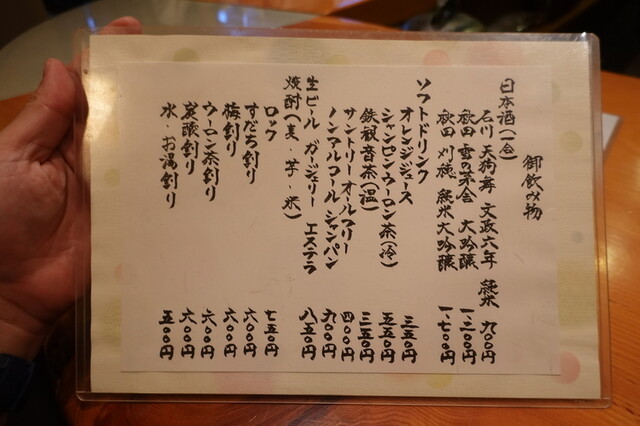 御飲み物
日本酒(一合)
石川 天狗舞 文政六年 純米 九〇〇円
秋田 雪の茅舎 大吟醸 一、三〇〇円
秋田 刈穂 純米大吟醸 一、七〇〇円
ソフトドリンク
オレンジジュース 三五〇円
シャンピンウーロン茶(冷) 五五〇円
鉄観音茶(温) 三五〇円
サントリーオールフリー 四〇〇円
ノンアルコールシャンパン 九〇〇円
生ビール ガージェリー エステラ 八五〇円
焼酎(麦・芋・米)
ロック 七五〇円
すだち割り 六〇〇円
梅割り 六〇〇円
ウーロン茶割り 六〇〇円
炭酸割り 六〇〇円
水・お湯割り 五〇〇円